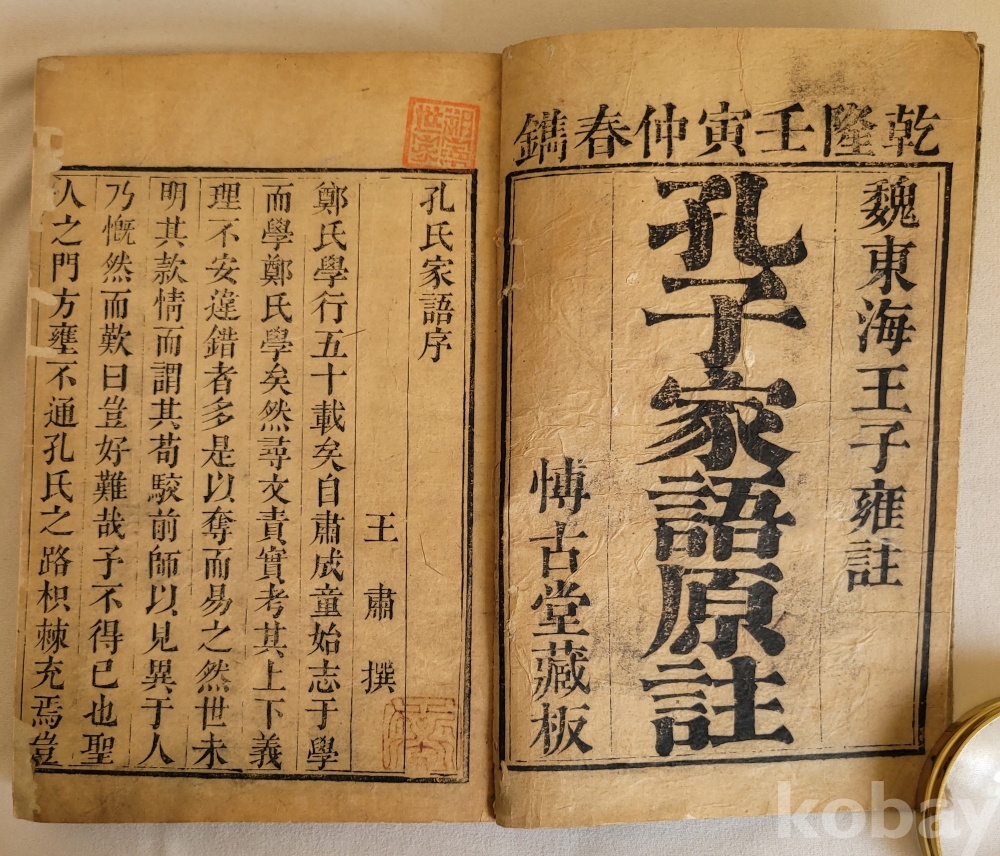 乾隆壬寅仲春鐫
魏東海王子雍註
孔子家語原註
博古堂藏板
孔氏家語序
王肅撰
鄭氏學行五十載矣自肅成童始志于學
而學鄭氏學矣然尋文責實考其上下義
理不安違錯者多是以奪而易之然世未
明其款情而謂其苟駮前師以見異于人
乃慨然而歎曰豈好難哉予不得已也聖
人之門方壅不通孔氏之路枳棘充焉豈
kobay